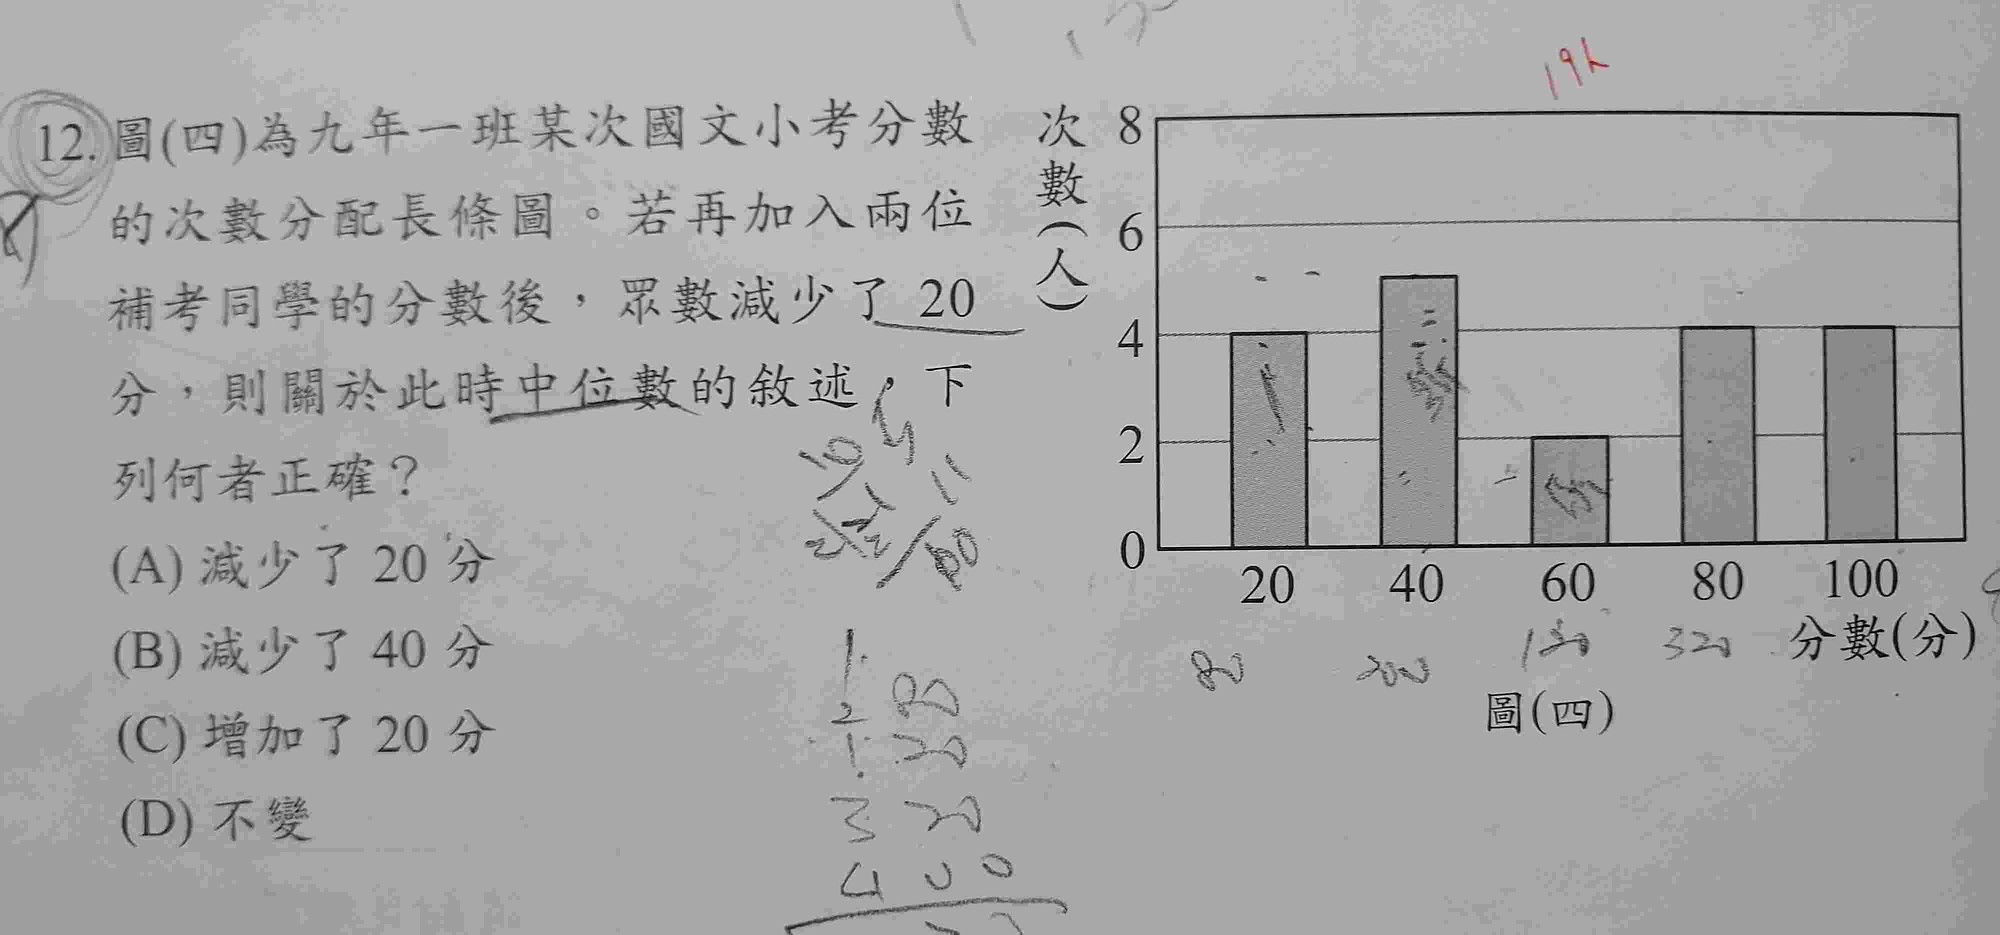 19人
12. 圖(四)為九年一班某次國文小考分數
的次數分配長條圖。若再加入兩位
補考同學的分數後，眾數減少了 20
分，則關於此時中位數的敘述，下
列何者正確？
(A) 減少了 20 分
(B) 減少了 40 分
(C) 增加了 20 分
(D) 不變
次數(人)
8
6
4
2
0
20 40 60 80 100
分數(分)
80 200 120 320
圖(四)
10
11
80
1 20
3 20
4 0 0